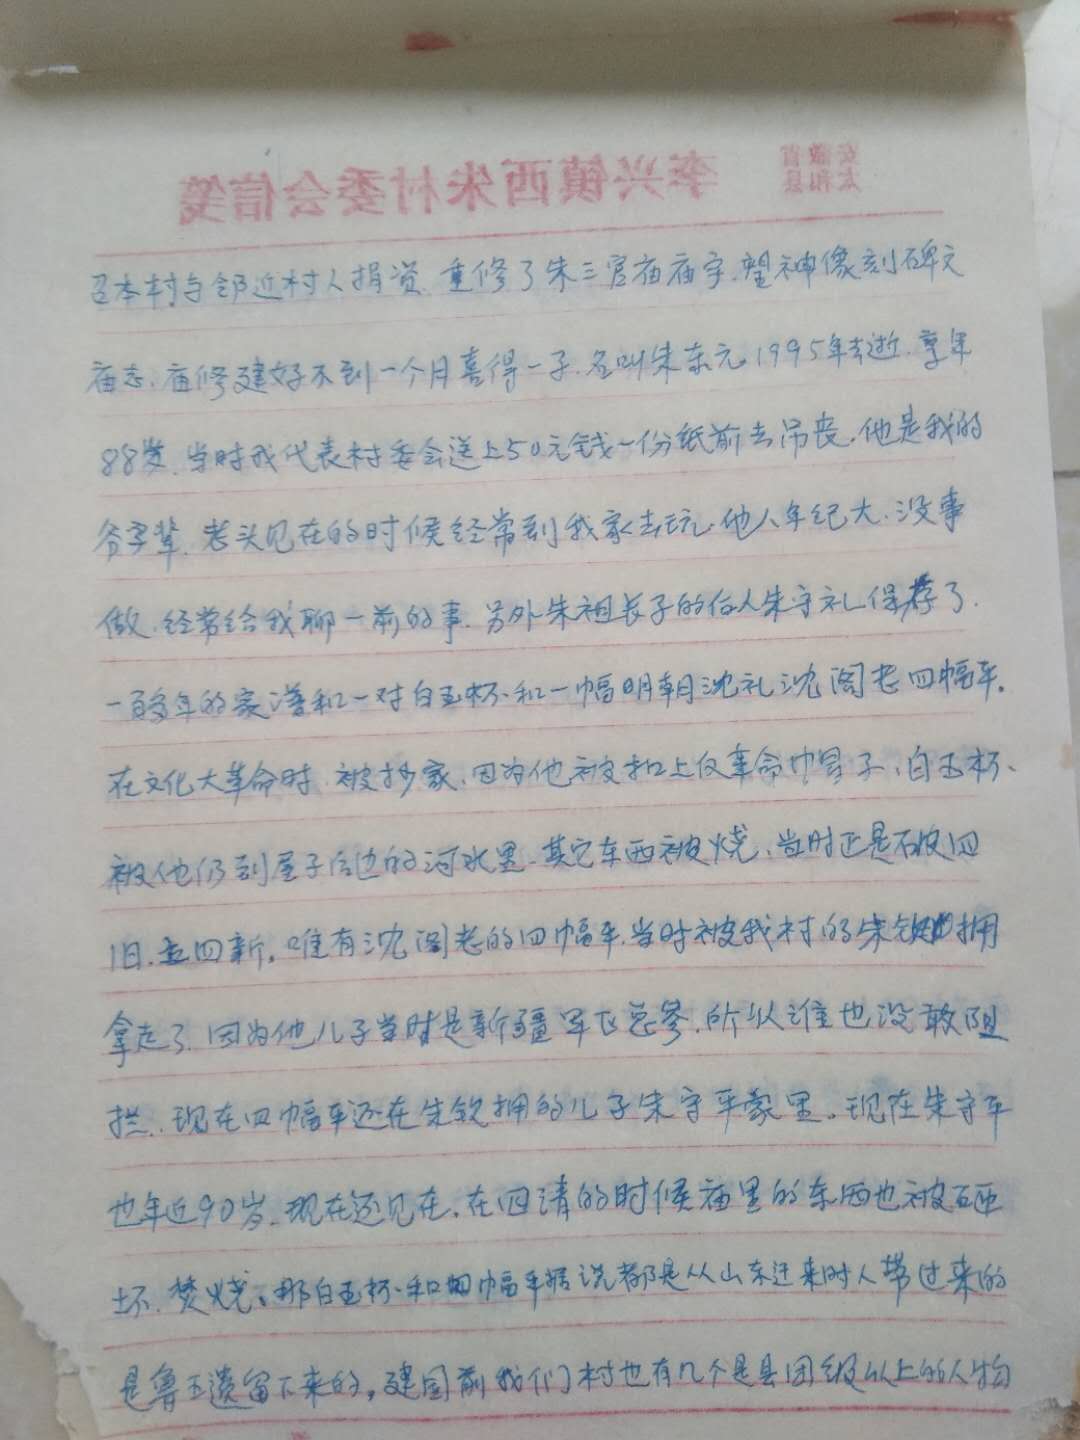 安徽省
太和县
李兴镇西朱村委会信笺
召本村与邻近村人捐资.重修了朱三官庙庙宇.塑神像刻碑文
庙志.庙修建好不到一个月喜得一子.名叫朱东元.1995年去逝.享年
88岁.当时我代表村委会送上50元钱一份纸前去吊丧.他是我的
爷字辈.老头见在的时候经常到我家去玩.他人年纪大.没事
做.经常给我聊一前的事.另外朱祖长子的后人朱守礼保存了.
一百多年的家谱和一对白玉杯.和一幅明朝沈礼沈阁老四幅平.
在文化大革命时.被抄家.因为他被扣上反革命巾冒子.白玉杯.
被他仍到屋子后边的河水里.其它东西被烧.当时正是破四
旧.立四新。唯有沈阁老的四幅平.当时被我村的朱钦拥
拿走了.因为他儿子当时是新疆军区总参.所以谁也没敢阻
拦.现在四幅平还在朱钦拥的儿子朱守平家里。现在朱守平
也年近90岁.现在还见在.在四清的时候庙里的东西也被砸
坏.焚烧.那白玉杯.和四幅平据说都是从山东迁来时人带过来的
是鲁王遗留下来的。建国前我们村也有几个是县团级以上的人物